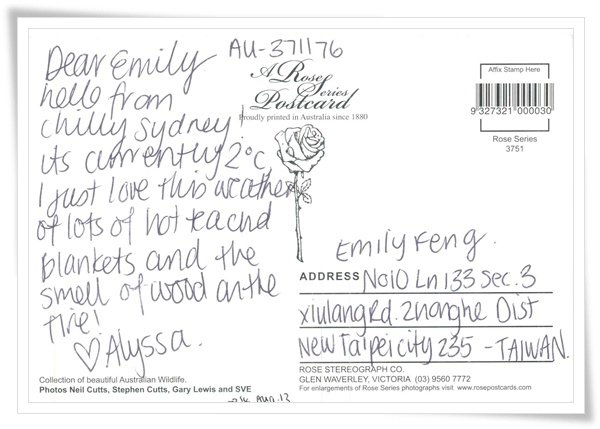 Dear Emily
hello from
chilly sydney!
its currently 2°c,
I just love this weather
of lots of hot tea and
blankets and the
smell of wood on the
fire!
♡ Alyssa.
Collection of beautiful Australian Wildlife.
Photos Neil Cutts, Stephen Cutts, Gary Lewis and SVE
AU-371176
A Rose
Series
Postcard
Proudly printed in Australia since 1880
Affix Stamp Here
9 327321 000030
Rose Series
3751
Emily Feng.
ADDRESS No10 Ln 133 Sec. 3
xiulang Rd. Zhonghe Dist
New Taipei city 235 - TAIWAN.
ROSE STEREOGRAPH CO.
GLEN WAVERLEY, VICTORIA (03) 9560 7772
For enlargements of Rose Series photographs visit www.rosepostcards.com
Aug. 12